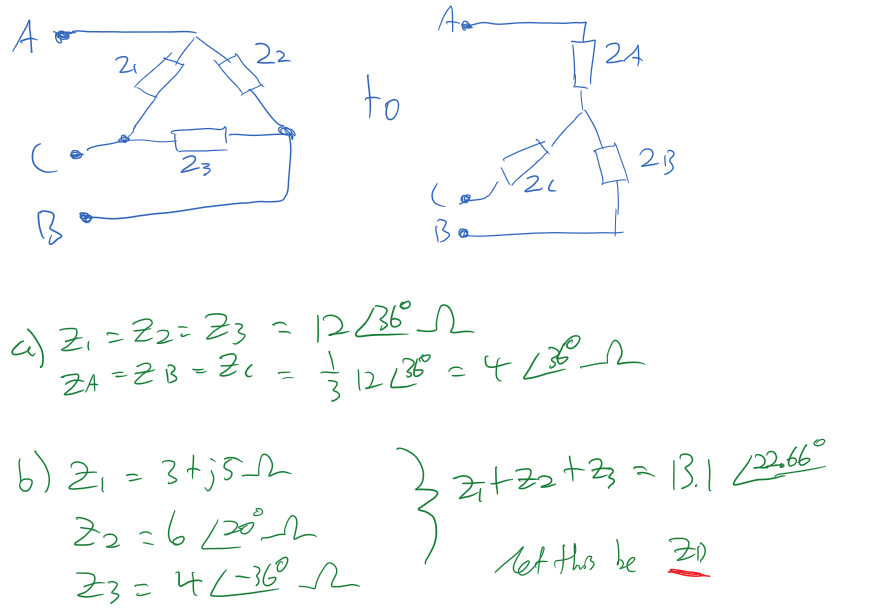 A
Z1
Z2
C
Z3
B
to
A
ZA
ZC
ZB
C
B
a) Z1 = Z2 = Z3 = 12 ∠36° Ω
ZA = ZB = ZC = 1/3 12 ∠36° = 4 ∠36° Ω
b) Z1 = 3 + j5 Ω
Z2 = 6 ∠20° Ω
Z3 = 4 ∠-36° Ω
} Z1 + Z2 + Z3 = 13.1 ∠22.66°
let this be ZD